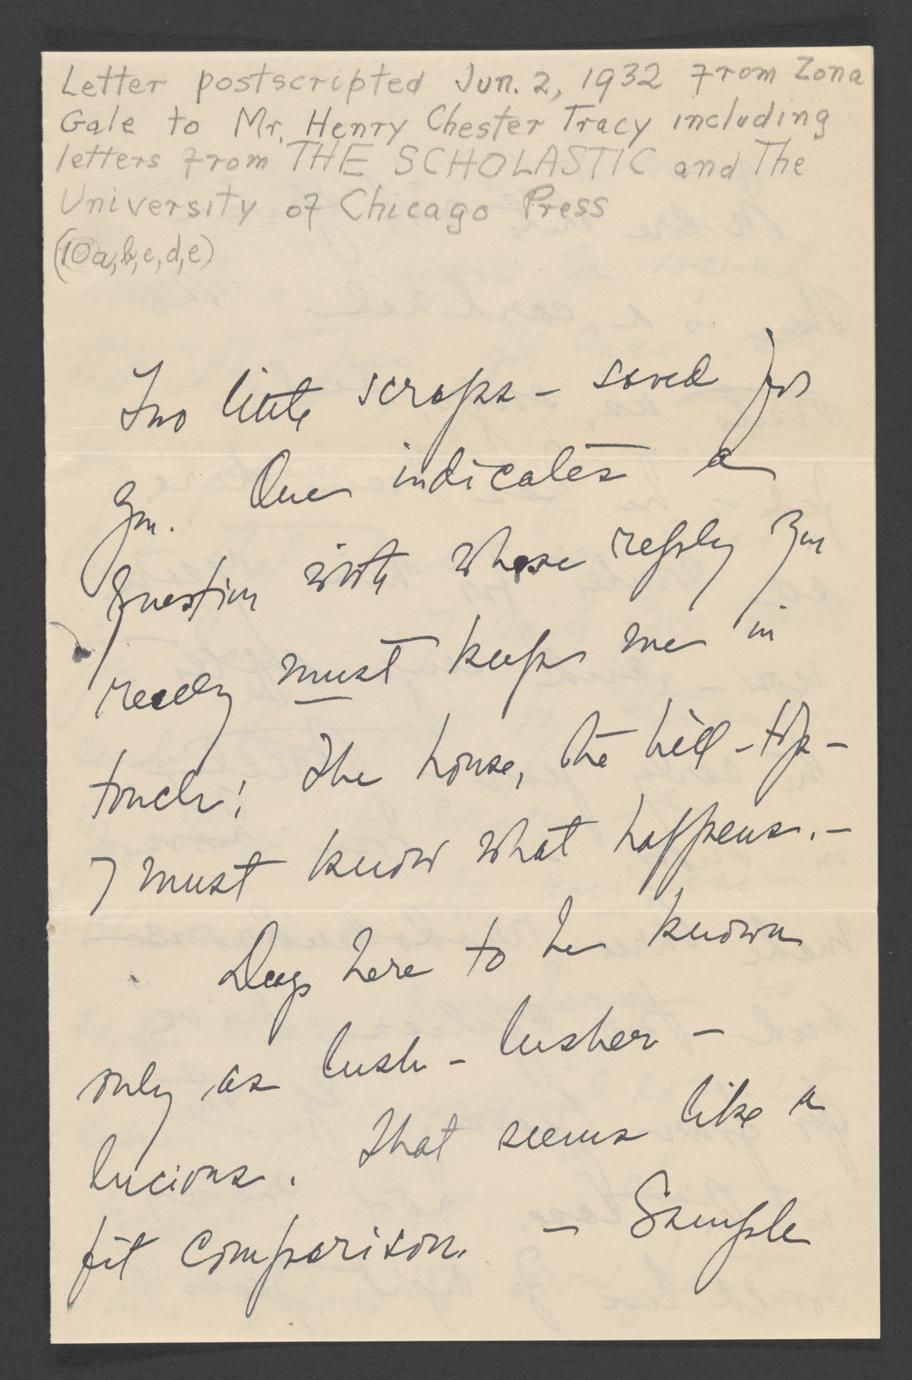 Letter postscripted Jun. 2, 1932 from Zona
Gale to Mr. Henry Chester Tracy including
letters from THE SCHOLASTIC and The
University of Chicago Press
(10a,b,c,d,e)
Two little scraps – saved for
you. One indicates a
question with whose reply you
really must keep me in
touch: The house, the hill-top –
I must know what happens. –
Days here to be known
only as lush – lusher –
lucious. That seems like a
fit comparison. – Sample